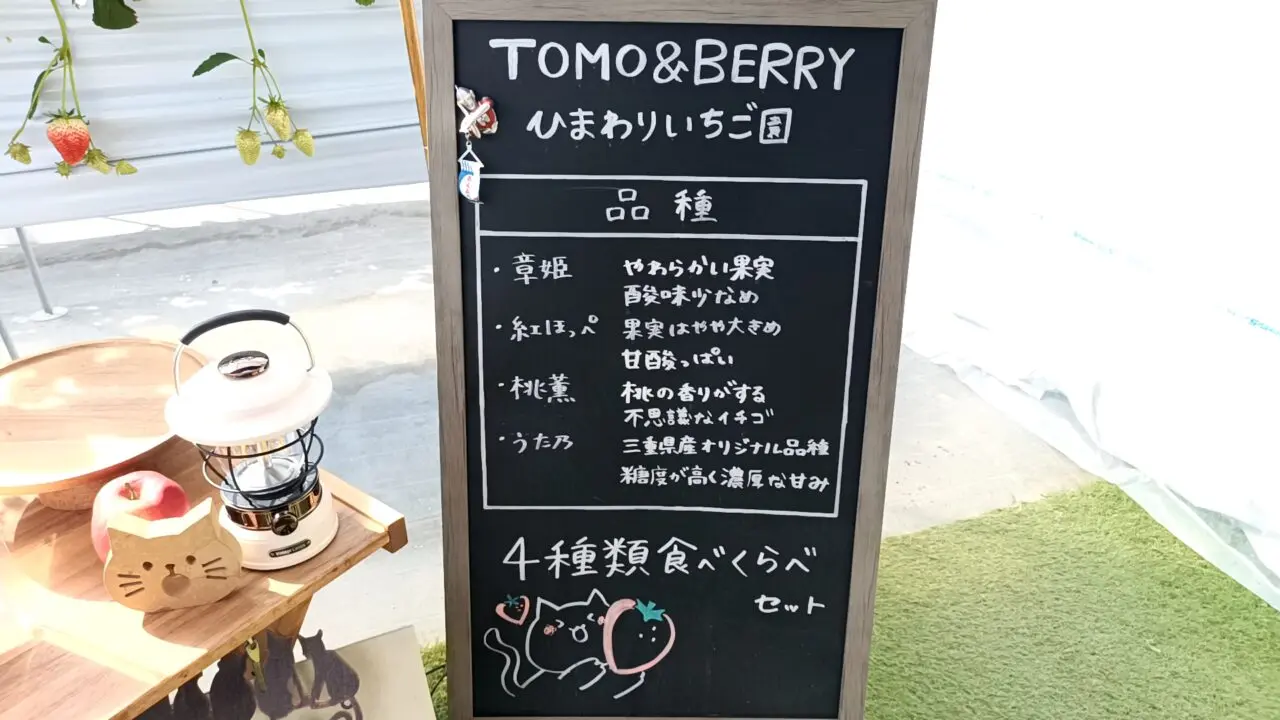 TOMO&BERRY
ひまわりいちご園
品種
・章姫 やわらかい果実
酸味少なめ
・紅ほっぺ 果実はやや大きめ
甘酸っぱい
・桃薫 桃の香りがする
不思議なイチゴ
・うた乃 三重県産オリジナル品種
糖度が高く濃厚な甘み
4種類食べくらべ
セット